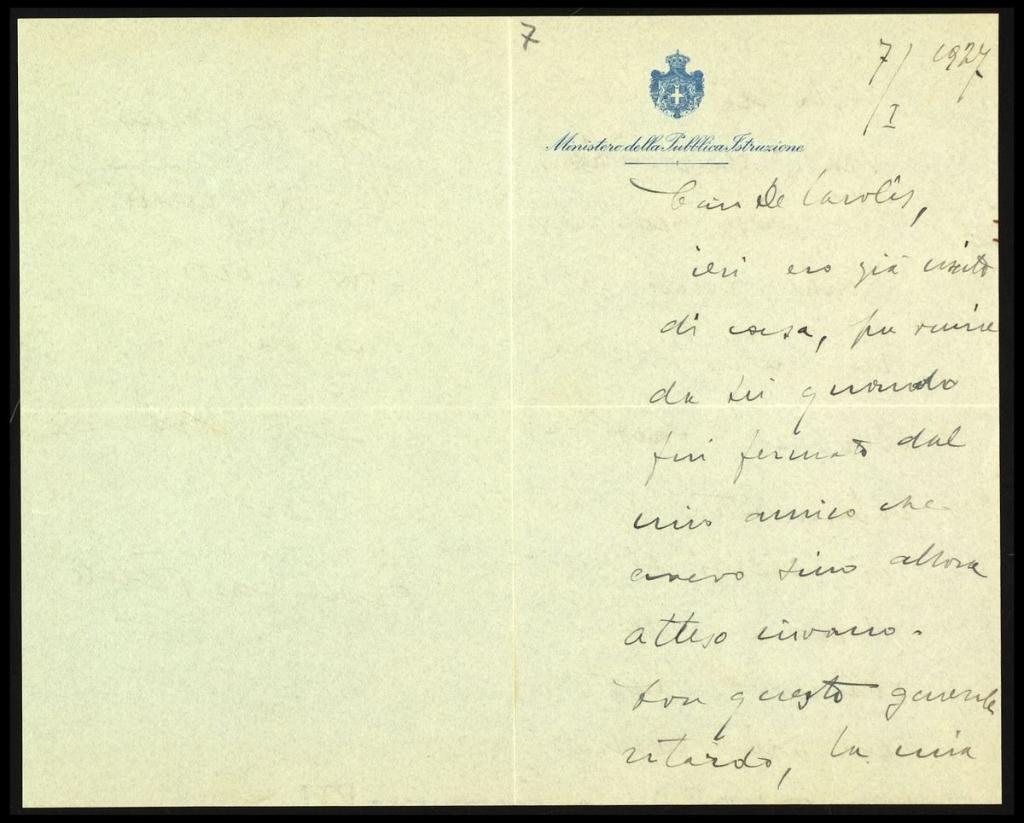 7
7/I 1927
Ministero della Pubblica Istruzione
Caro De Carolis,
ieri ero già uscito
di casa, per venire
da Lei quando
fui fermato dal
mio amico che
avevo sino allora
atteso invano.
Con questo generale
ritardo, la mia